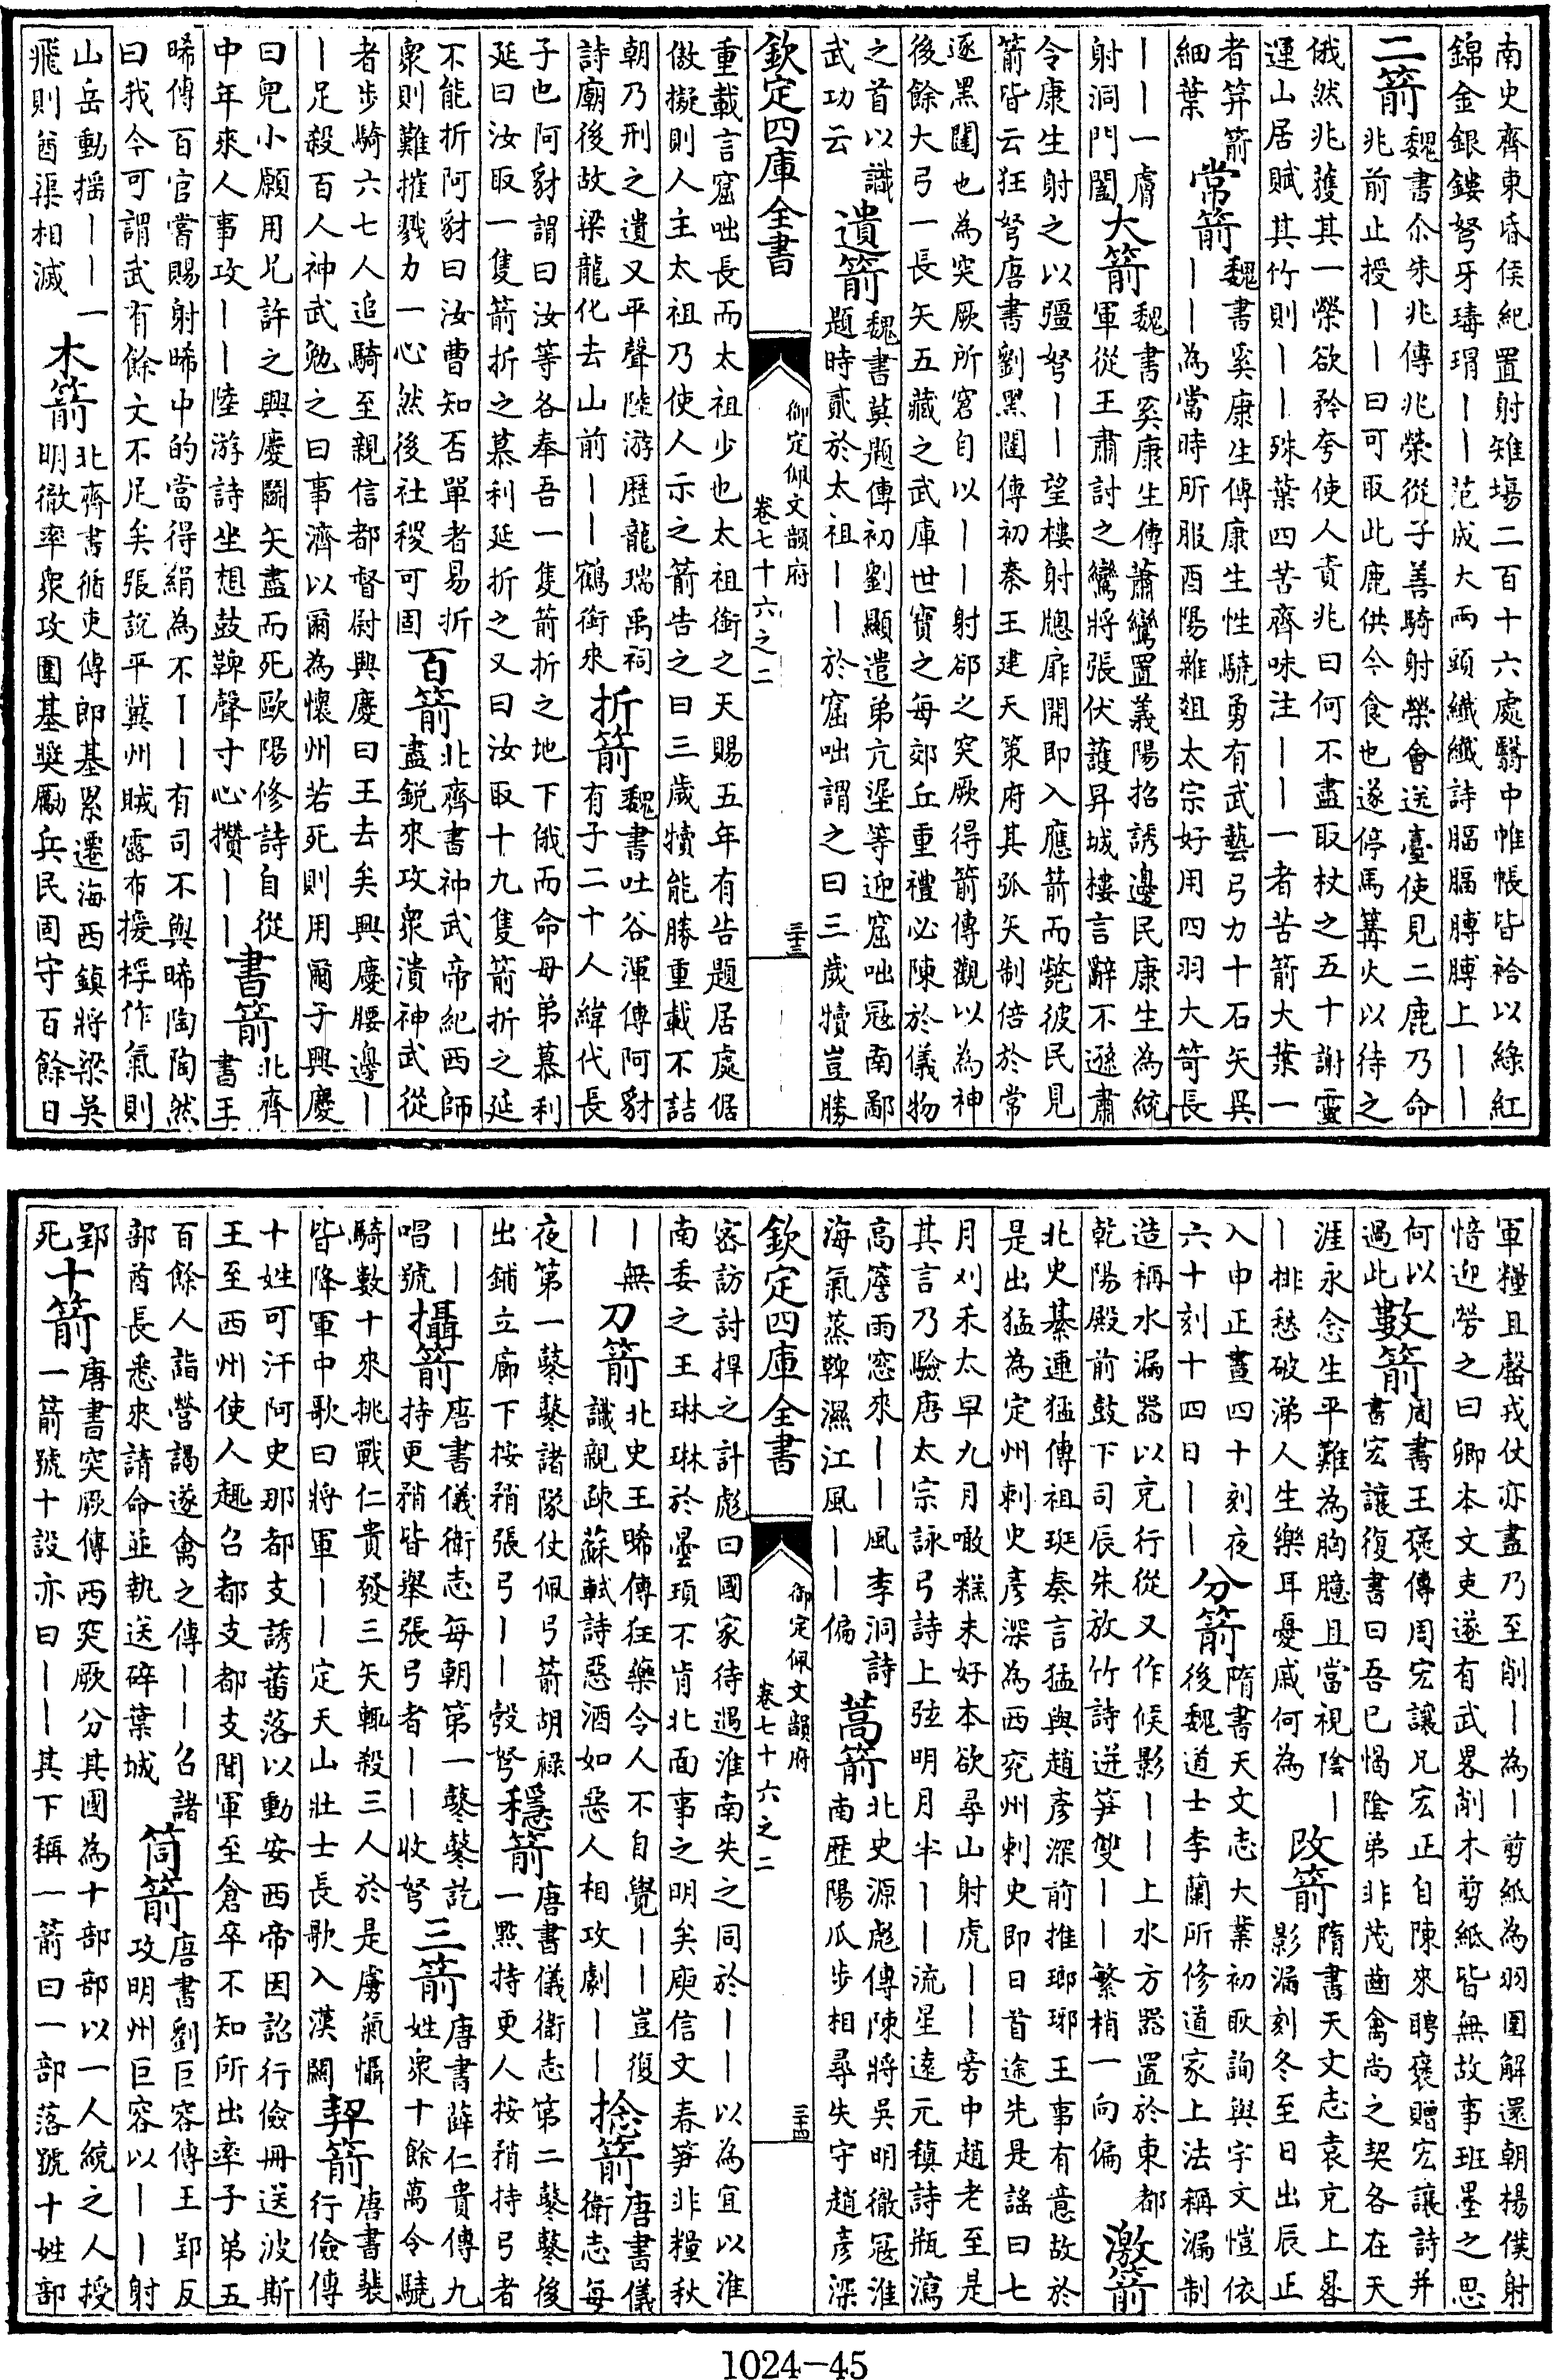 南史齊東昏侯紀置射雉塲二百十六處翳中帷帳皆袷以綠紅
錦金銀鏤弩牙瑇瑁丨丨范成大兩頭纖纖詩膈膈膊膊上丨丨
二箭
魏書尒朱兆傳兆榮從子善騎射榮會送臺使見二鹿乃命
兆前止授丨丨曰可取此鹿供今食也遂停馬篝火以待之
俄然兆獲其一榮欲矜夸使人責兆曰何不盡取杖之五十謝靈
運山居賦其竹則丨丨殊葉四苦齊味注丨丨一者苦箭大葉一
者笄箭
細葉
常箭
魏書奚康生傳康生性驍勇有武藝弓力十石矢異
丨丨為當時所服酉陽雜俎太宗好用四羽大笴長
丨丨一膚
射洞門闔
大箭
魏書奚康生傳蕭鸞置義陽招誘邊民康生為統
軍從王肅討之鸞將張伏護昇城樓言辭不遜肅
令康生射之以彊弩丨丨望樓射牕扉開即入應箭而斃彼民見
箭皆云狂弩唐書劉黑闥傳初秦王建天策府其弧矢制倍於常
逐黑闥也為突厥所窘自以丨丨射郤之突厥得箭傳觀以為神
後餘大弓一長矢五藏之武庫世寶之每郊丘重禮必陳於儀物
之首以識
武功云
遺箭
魏書莫題傳初劉顯遣弟亢埿等迎窟咄冦南鄙
題時貳於太祖丨丨於窟咄謂之曰三歳犢豈勝
欽定四庫全書
御定佩文韻府
卷七十六之二
三十三
重載言窟咄長而太祖少也太祖銜之天賜五年有告題居處倨
傲擬則人主太祖乃使人示之箭告之曰三歳犢能勝重載不詰
朝乃刑之遺又平聲陸游歴龍瑞禹祠
詩廟後故梁龍化去山前丨丨鶴銜來
折箭
魏書吐谷渾傳阿豺
有子二十人緯代長
子也阿豺謂曰汝等各奉吾一隻箭折之地下俄而命母弟慕利
延曰汝取一隻箭折之慕利延折之又曰汝取十九隻箭折之延
不能折阿豺曰汝曹知否單者易折
衆則難摧戮力一心然後社稷可固
百箭
北齊書神武帝紀西師
盡鋭來攻衆潰神武從
者步騎六七人追騎至親信都督尉興慶曰王去矣興慶腰邊丨
丨足殺百人神武勉之曰事濟以爾為懷州若死則用爾子興慶
曰兒小願用兄許之興慶鬭矢盡而死歐陽修詩自從
中年來人事攻丨丨陸游詩坐想鼓鞞聲寸心攢丨丨
書箭
北齊
書王
晞傳百官嘗賜射晞中的當得絹為不丨丨有司不與晞陶陶然
曰我今可謂武有餘文不足矣張説平冀州賊露布援桴作氣則
山岳動揺丨丨一
飛則酋渠相滅
木箭
北齊書循吏傳郎基累遷海西鎮將梁吳
明徹率衆攻圍基奬勵兵民固守百餘日
軍糧且罄戎仗亦盡乃至削丨為丨剪紙為羽圍解還朝楊僕射
愔迎勞之曰卿本文吏遂有武畧削木剪紙皆無故事班墨之思
何以
過此
數箭
周書王褒傳周宏讓兄宏正自陳來聘褒贈宏讓詩并
書宏讓復書曰吾已愒陰弟非茂齒禽尚之契各在天
涯永念生平難為胸臆且當視陰丨
丨排愁破涕人生樂耳憂戚何為
改箭
隋書天文志袁充上晷
影漏刻冬至日出辰正
入申正晝四十刻夜
六十刻十四日丨丨
分箭
隋書天文志大業初耿詢與宇文愷依
後魏道士李蘭所修道家上法稱漏制
造稱水漏器以充行從又作候影丨丨上水方器置於東都
乾陽殿前鼓下司辰朱放竹詩迸笋雙丨丨繁梢一向偏
激箭
北史綦連猛傳祖珽奏言猛與趙彥深前推瑯琊王事有意故於
是出猛為定州刺史彥深為西兖州刺史即日首途先是謡曰七
月刈禾太早九月噉糕未好本欲尋山射虎丨丨旁中趙老至是
其言乃驗唐太宗詠弓詩上弦明月半丨丨流星遠元稹詩瓶瀉
高簷雨窓來丨丨風李洞詩
海氣蒸鞞濕江風丨丨偏
蒿箭
北史源彪傳陳將吳明徹冦淮
南歴陽瓜步相尋失守趙彥深
欽定四庫全書
御定佩文韻府
卷七十六之二
三十四
宻訪討捍之計彪曰國家待遇淮南失之同於丨丨以為宜以淮
南委之王琳琳於曇頊不肯北面事之明矣庾信文春笋非糧秋
丨無
丨
刀箭
北史王晞傳狂藥令人不自覺丨丨豈復
識親疎蘇軾詩惡酒如惡人相攻劇丨丨
捻箭
唐書儀
衛志每
夜第一鼕鼕諸隊仗佩弓箭胡祿
出鋪立廊下按矟張弓丨丨彀弩
穩箭
唐書儀衛志第二鼕鼕後
一點持更人按矟持弓者
丨丨
唱號
攝箭
唐書儀衛志每朝第一鼕鼕訖
持更矟皆舉張弓者丨丨收弩
三箭
唐書薛仁貴傳九
姓衆十餘萬令驍
騎數十來挑戰仁貴發三矢輒殺三人於是虜氣懾
皆降軍中歌曰將軍丨丨定天山壯士長歌入漢關
契箭
唐書裴
行儉傳
十姓可汗阿史那都支誘蕃落以動安西帝因詔行儉冊送波斯
王至西州使人趣召都支都支聞軍至倉卒不知所出率子弟五
百餘人詣營謁遂禽之傳丨丨召諸
部酋長悉來請命並執送碎葉城
筒箭
唐書劉巨容傳王郢反
攻明州巨容以丨丨射
郢
死
十箭
唐書突厥傳西突厥分其國為十部部以一人統之人授
一箭號十設亦曰丨丨其下稱一箭曰一部落號十姓部
1024-45